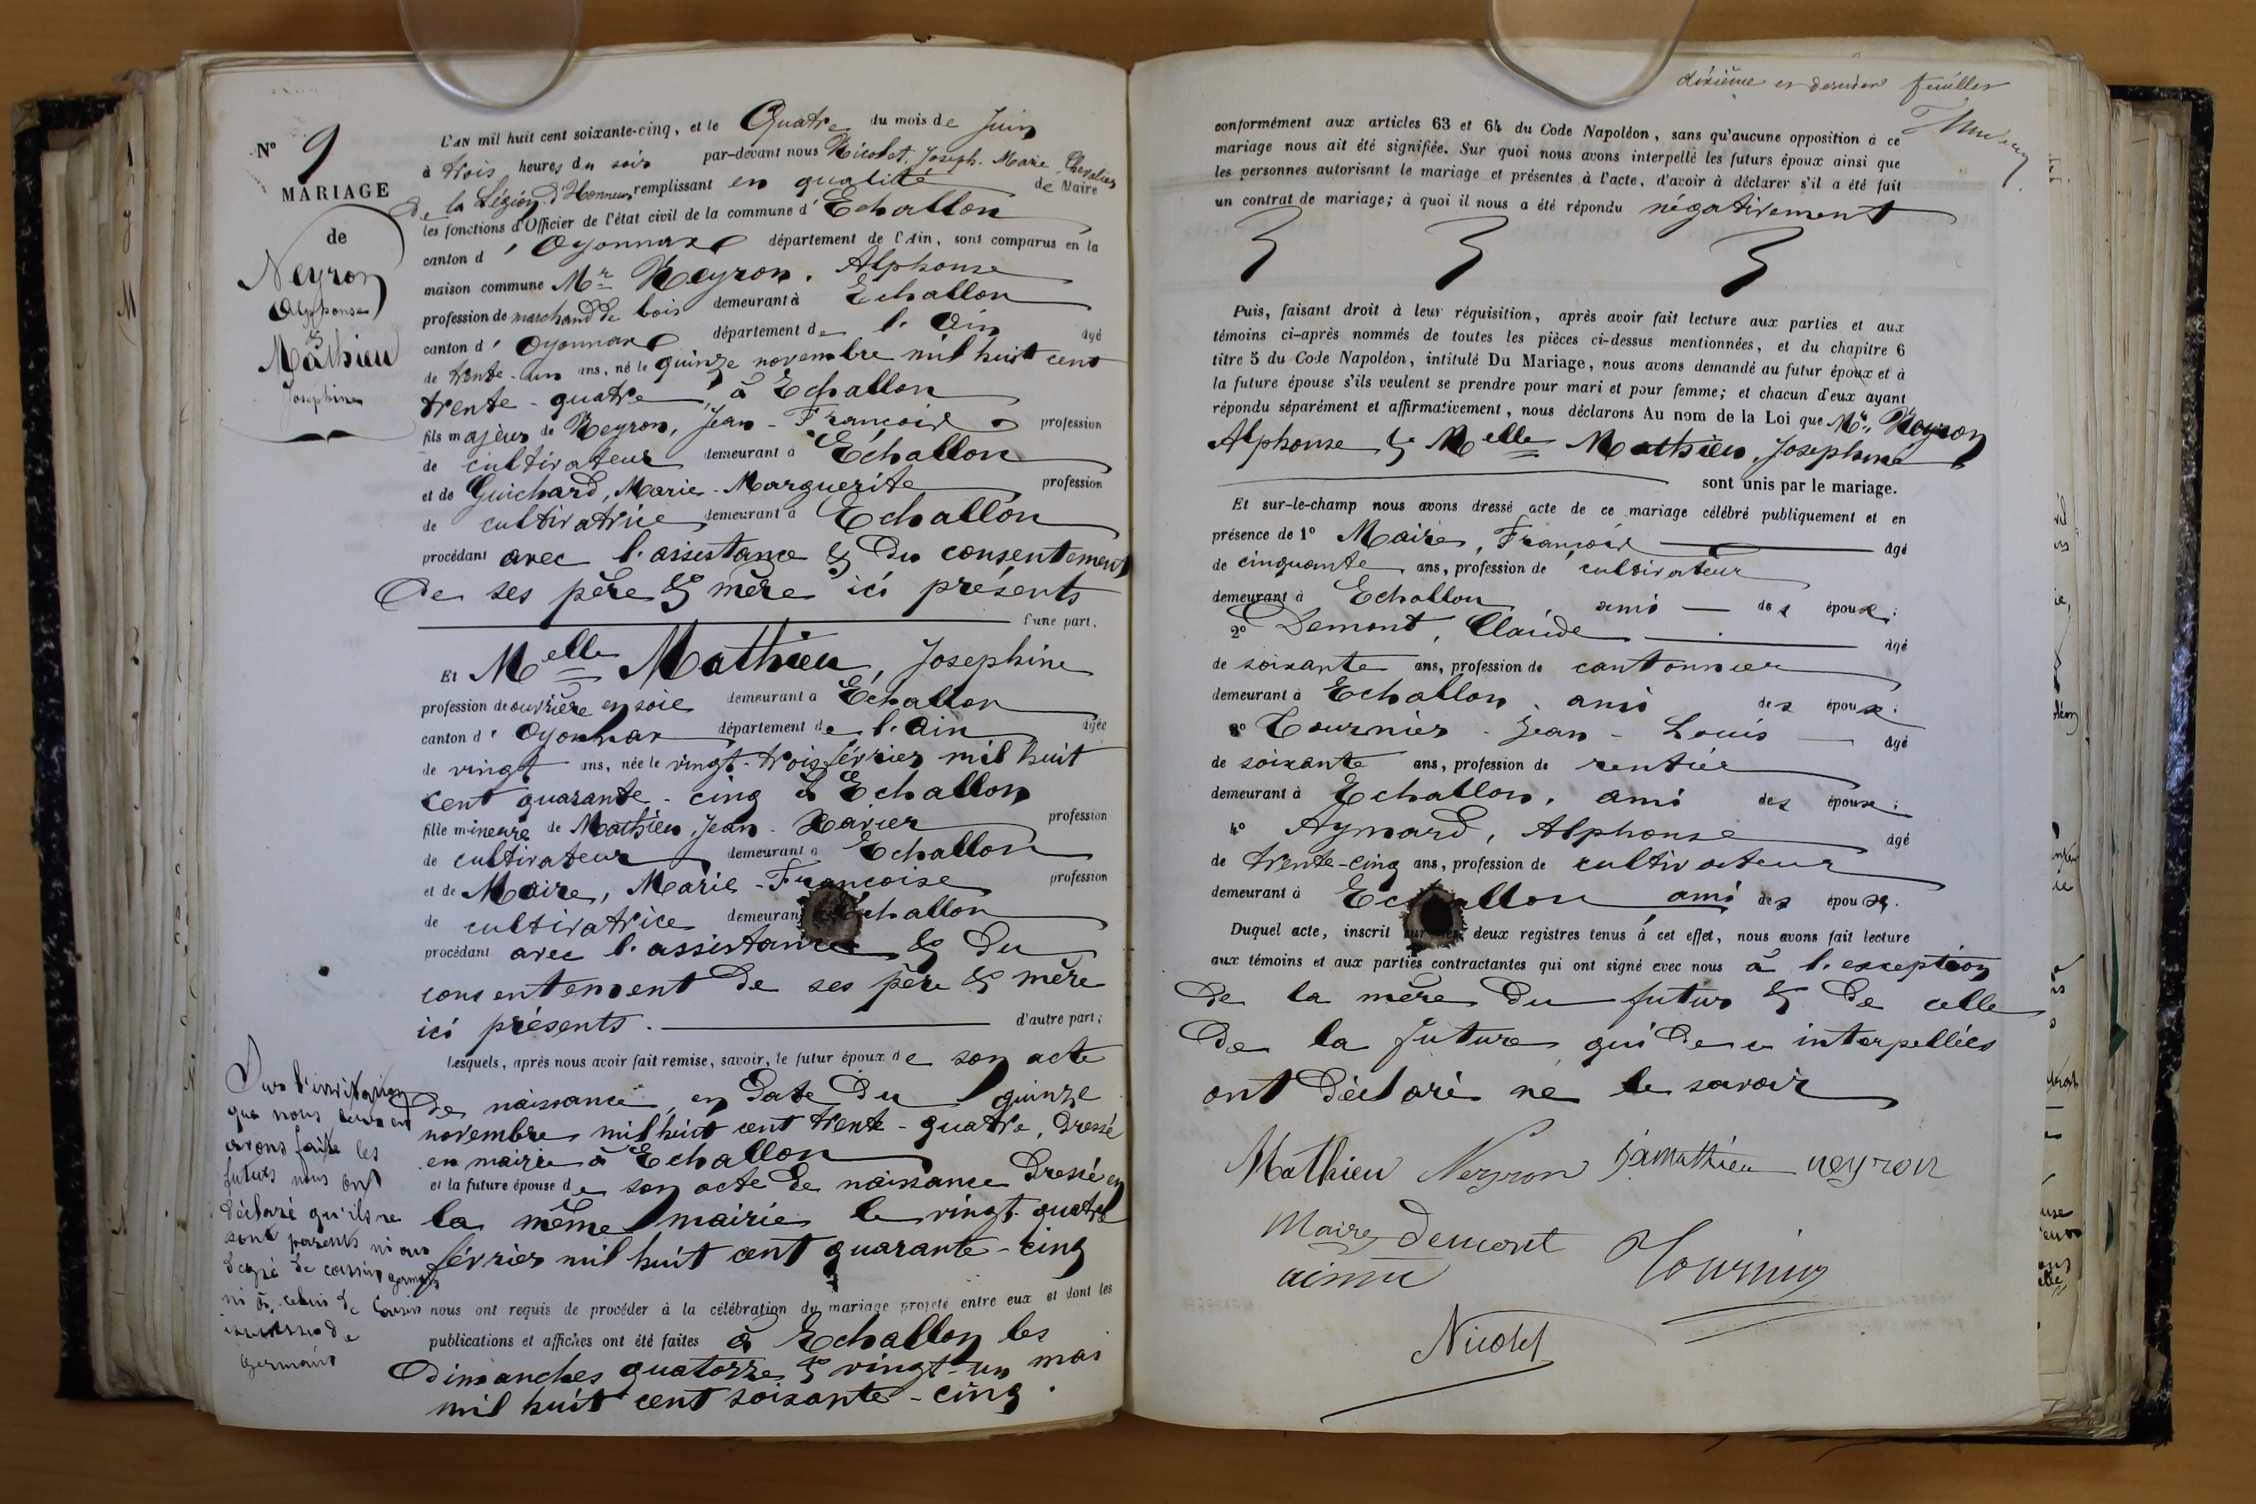 N° 9
MARIAGE
de
Neyron
Alphonse
&
Mathieu
Josephine
L'AN mil huit cent soixante-cinq, et le Quatre du mois de Juin
à trois heures du soir par-devant nous Nicolet, Joseph-Marie, Chevalier
de la Légion d'Honneur remplissant en qualité de Maire
les fonctions d'Officier de l'état civil de la commune d' Echallon
canton d' Oyonnax département de l'Ain, sont comparus en la
maison commune Mr Neyron, Alphonse
profession de marchand de bois demeurant à Echallon
canton d' Oyonnax département de l'Ain âgé
de trente-un ans, né le quinze novembre mil huit cent
trente-quatre, à Echallon
fils majeur de Neyron, Jean-François profession
de cultivateur demeurant à Echallon
et de Guichard, Marie-Marguerite profession
de cultivatrice demeurant à Echallon
procédant avec l'assistance & du consentement
de ses père & mère ici présents
d'une part.
Et Melle Mathieu, Josephine
profession de ouvrière en soie demeurant à Echallon
canton d' Oyonnax département de l'Ain âgée
de vingt ans, née le vingt-trois février mil huit
cent quarante-cinq à Echallon
fille mineure de Mathieu, Jean-Xavier profession
de cultivateur demeurant à Echallon
et de Maire, Marie-Françoise profession
de cultivatrice demeurant Echallon
procédant avec l'assistance & du
consentement de ses père & mère
ici présents. d'autre part;
Lesquels, après nous avoir fait remise, savoir, le futur époux de son acte
de naissance, en date du quinze
novembre mil huit cent trente-quatre, dressé
en mairie à Echallon
et la future épouse de son acte de naissance dressé en
la même mairie le vingt-quatre
février mil huit cent quarante-cinq
nous ont requis de procéder à la célébration du mariage projeté entre eux et dont les
publications et affiches ont été faites à Echallon les
dimanches quatorze & vingt-un mai
mil huit cent soixante-cinq.
Sur l'invitation
que nous leur en
avons faite les
futurs nous ont
déclaré qu'ils ne
sont parents ni au
degré de cousins germains
ni à celui de cousins
issus de
germains
dixième et dernier feuillet
conformément aux articles 63 et 64 du Code Napoléon, sans qu'aucune opposition à ce
mariage nous ait été signifiée. Sur quoi nous avons interpellé les futurs époux ainsi que
les personnes autorisant le mariage et présentes à l'acte, d'avoir à déclarer s'il a été fait
un contrat de mariage; à quoi il nous a été répondu négativement
Puis, faisant droit à leur réquisition, après avoir fait lecture aux parties et aux
témoins ci-après nommés de toutes les pièces ci-dessus mentionnées, et du chapitre 6
titre 5 du Code Napoléon, intitulé Du Mariage, nous avons demandé au futur époux et à
la future épouse s'ils veulent se prendre pour mari et pour femme; et chacun d'eux ayant
répondu séparément et affirmativement, nous déclarons Au nom de la Loi que Mr. Neyron
Alphonse & Melle Mathieu, Josephine
sont unis par le mariage.
Et sur-le-champ nous avons dressé acte de ce mariage célébré publiquement et en
présence de 1° Maire, François âgé
de cinquante ans, profession de cultivateur
demeurant à Echallon ami des époux;
2° Demont, Claude âgé
de soixante ans, profession de cantonnier
demeurant à Echallon, ami des époux;
3° Tournier Jean-Louis âgé
de soixante ans, profession de rentier
demeurant à Echallon, ami des époux;
4° Aymard, Alphonse âgé
de trente-cinq ans, profession de cultivateur
demeurant à Echallon ami des époux.
Duquel acte, inscrit sur les deux registres tenus à cet effet, nous avons fait lecture
aux témoins et aux parties contractantes qui ont signé avec nous à l'exception
de la mère du futur & de celle
de la future qui de ce interpellées
ont déclaré ne le savoir
Mathieu Neyron j x mathieu neyron
Maire Demont Tournier
aimar
Nicolet